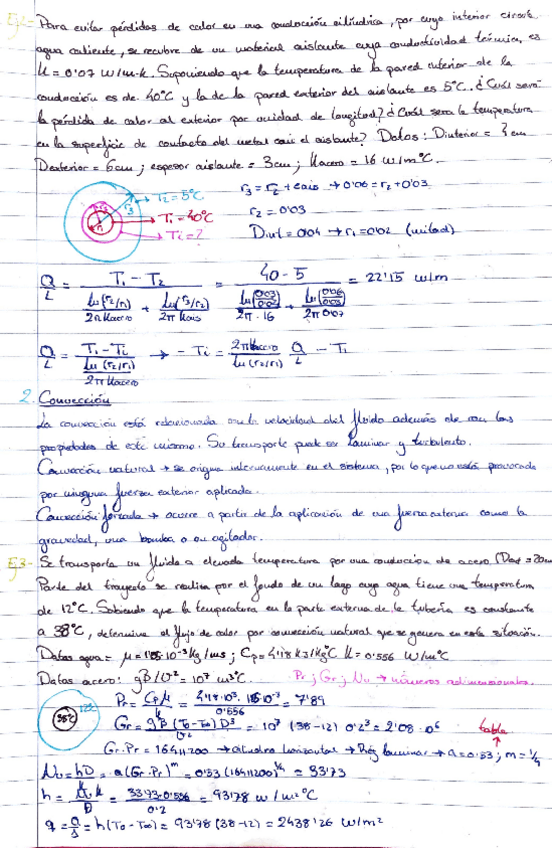 Ej2- Para evitar pérdidas de calor en una conducción cilíndrica, por cuyo interior circula
agua caliente, se recubre de un material aislante cuya conductividad térmica, es
K = 0'07 W/m·k. Suponiendo que la temperatura de la pared interior de la
conducción es de 40°C y la de la pared exterior del aislante es 5°C. ¿Cuál será
la pérdida de calor al exterior por unidad de longitud? ¿Cuál será la temperatura
en la superficie de contacto del metal con el aislante? Datos: Dinterior = 4cm
Dexterior = 6cm; espesor aislante = 3cm; Kacero = 16 w/m°C.
T2 = 5°C
r3
r1
Ti = 40°C
Ti = ?
r3 = r2 + eais → 0'06 = r2 + 0'03
r2 = 0'03
Dint = 0'04 → r1 = 0'02 (mitad)
Q/L = (T1 - T2) / (ln(r2/r1)/2πKacero + ln(r3/r2)/2πKais) = (40 - 5) / (ln(0'03/0'02)/2π·16 + ln(0'06/0'03)/2π0'07) = 22'15 w/m
Q/L = (T1 - Ti) / (ln(r2/r1)/2πKacero) → - Ti = 2πKacero/ln(r2/r1) Q/L - T1
2. Convección
La convección está relacionada con la velocidad del fluido además de con las
propiedades de este mismo. Su transporte puede ser laminar y turbulento.
Convección natural → se origina internamente en el sistema, por lo que no está provocada
por ninguna fuerza exterior aplicada.
Convección forzada → ocurre a partir de la aplicación de una fuerza externa como la
gravedad, una bomba o un agitador.
Ej3- Se transporta un fluido a elevada temperatura por una conducción de acero (Dext = 20cm
Parte del trayecto se realiza por el fondo de un lago cuya agua tiene una temperatura
de 12°C. Sabiendo que la temperatura en la parte externa de la tubería es constante
a 38°C, determine el flujo de calor por convección natural que se genera en esta situación.
Datos agua: μ = 1'05·10⁻³ kg/ms; Cp = 4'18 kJ/kg°C K = 0'556 W/m°C
Datos acero: gβ/υ² = 10⁷ m³°C. Pr; Gr; Nu → números adimensionales.
12°C
38°C
Pr = Cpμ/k = 4'18·10³·1'05·10⁻³/0'556 = 7'89
Gr = gβ(To-T∞)D³/υ² = 10⁷ (38-12) 0'2³ = 2'08·10⁶
tabla
Gr·Pr = 16411200 → cilindro horizontal → Rég laminar → a = 0'53; m = 1/4
Nu = hD/k = a(Gr·Pr)^m = 0'53 (16411200)^1/4 = 33'73
h = Nu k/D = 33'73·0'556/0'2 = 93'78 w/m²°C
q = Q/S = h(To - T∞) = 93'78 (38-12) = 2438'26 W/m²